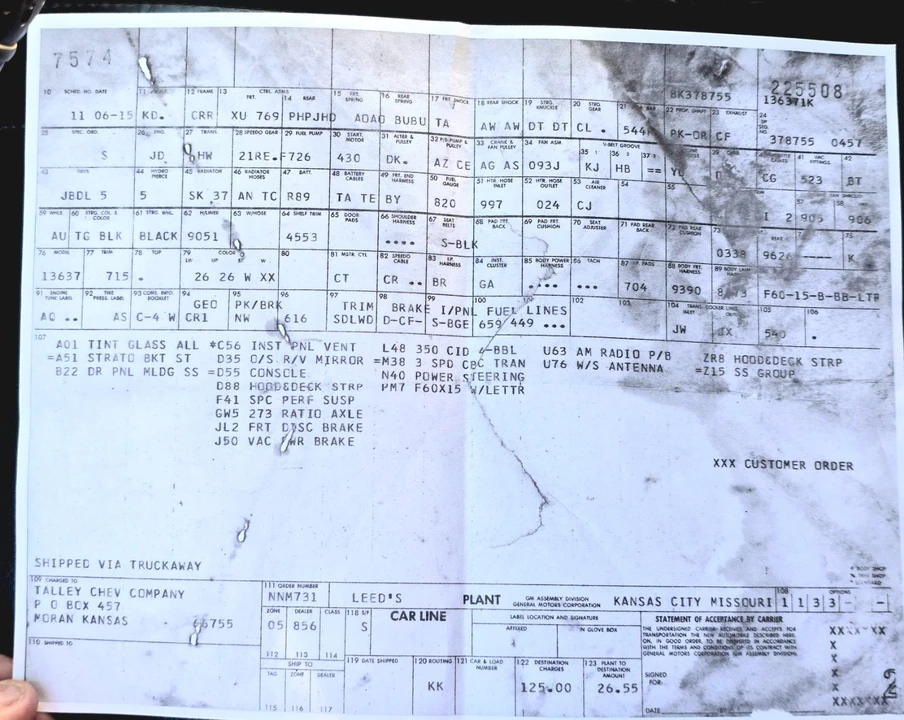 7574
BK378755 225508
10 SCHED. NO. DATE 12 FRAME 13 CTRL. ASMS FRT. 14 REAR 15 FRT. SPRING 16 REAR SPRING 17 FRT. SHOCK 18 REAR SHOCK 19 STRG. KNUCKLE 20 STRG. GEAR 22 PROP. SHAFT 23 EXHAUST 24 136371K
11 06-15 KD. CRR XU 769 PHPJHD AOAO BUBU TA AW AW DT DT CL . 544 PK-OR CF 378755 0457
25 SPEC. ORD. 26 ENG. 27 TRANS. 28 SPEEDO GEAR 29 FUEL PUMP 30 START. MOTOR 31 ALTER & PULLEY 32 P/S PUMP & PULLEY 33 CRANK & FAN PULLEY 34 FAN ASM. 35 V-BELT GROOVE 36 37 41 VAC FITTINGS 42
S JD HW 21RE.F726 430 DK. AZ CE AG AS 093J KJ HB == CG 523 BT
44 HYDRO PIERCE 45 RADIATOR 46 RADIATOR HOSES 47 BATT. 48 BATTERY CABLES 49 FRT. END HARNESS 50 FUEL GAUGE 51 HTR. HOSE INLET 52 HTR. HOSE OUTLET 53 AIR CLEANER 54 55 57 58
JBDL 5 5 SK 37 AN TC R89 TA TE BY 820 997 024 CJ I 2 905 906
59 WHLS 60 STRG. COL. & COLOR 61 STRG. WHL. 62 H/LINER 63 W/HOSE 64 SHELF TRIM 65 DOOR PADS 66 SHOULDER HARNESS 67 SEAT BELTS 68 PAD FRT. BACK 69 PAD FRT. CUSHION 70 SEAT ADJUSTER 71 PAD REAR BACK 72 PAD REAR CUSHION 73 75
AU TG BLK BLACK 9051 4553 •••• S-BLK 0338 9626 K
76 MODEL 77 TRIM 78 TOP 79 COLOR LW UP BT W 80 81 MSTR. CYL 82 SPEEDO CABLE 83 I.P. HARNESS 84 INST. CLUSTER 85 BODY POWER HARNESS 86 TACH 87 I.P. PADS 88 BODY FRT. HARNESS 89 BODY LAMP HARNESS
13637 715. . 26 26 W XX CT CR •• BR GA •••• ••• 704 9390 F60-15-B-BB-LTR
91 ENGINE TUNE LABEL 92 TIRE PRESS. LABEL 93 CONS. INFO. BOOKLET 94 95 96 97 98 99 100 102 103 104 TRANS. COOLER LINES 105 106
GEO PK/BRK TRIM BRAKE I/PNL FUEL LINES
AO •• AS C-4 W CR1 NW 616 SDLWD D-CF- S-BGE 659 449 ••• JW JX 540 .
107
A01 TINT GLASS ALL *C56 INST PNL VENT L48 350 CID 4-BBL U63 AM RADIO P/B ZR8 HOOD&DECK STRP
=A51 STRATO BKT ST D35 O/S R/V MIRROR =M38 3 SPD CBC TRAN U76 W/S ANTENNA =Z15 SS GROUP
B22 DR PNL MLDG SS =D55 CONSOLE N40 POWER STEERING
D88 HOOD&DECK STRP PM7 F60X15 W/LETTR
F41 SPC PERF SUSP
GW5 273 RATIO AXLE
JL2 FRT DISC BRAKE
J50 VAC PWR BRAKE
XXX CUSTOMER ORDER
SHIPPED VIA TRUCKAWAY
109 CHARGED TO
TALLEY CHEV COMPANY
P O BOX 457
MORAN KANSAS 66755
110 SHIPPED TO
111 ORDER NUMBER
NNM731 LEED'S PLANT GM ASSEMBLY DIVISION GENERAL MOTORS CORPORATION KANSAS CITY MISSOURI 108 OPTIONS 1 1 3 3 - -
ZONE DEALER CLASS 118 S/F CAR LINE LABEL LOCATION AND SIGNATURE
05 856 S AFFIXED IN GLOVE BOX
112 113 114
SHIP TO
TAG ZONE DEALER
115 116 117
119 DATE SHIPPED 120 ROUTING 121 CAR & LOAD NUMBER 122 DESTINATION CHARGES 123 PLANT TO DESTINATION AMOUNT
KK 125.00 26.55
STATEMENT OF ACCEPTANCE BY CARRIER
THE UNDERSIGNED CARRIER RECEIVES AND ACCEPTS FOR
TRANSPORTATION THE NEW AUTOMOBILE DESCRIBED HERE
ON, IN GOOD ORDER, TO BE DELIVERED IN ACCORDANCE
WITH THE TERMS AND CONDITIONS OF ITS CONTRACT WITH
GENERAL MOTORS CORPORATION GM ASSEMBLY DIVISION.
SIGNED
FOR
DATE